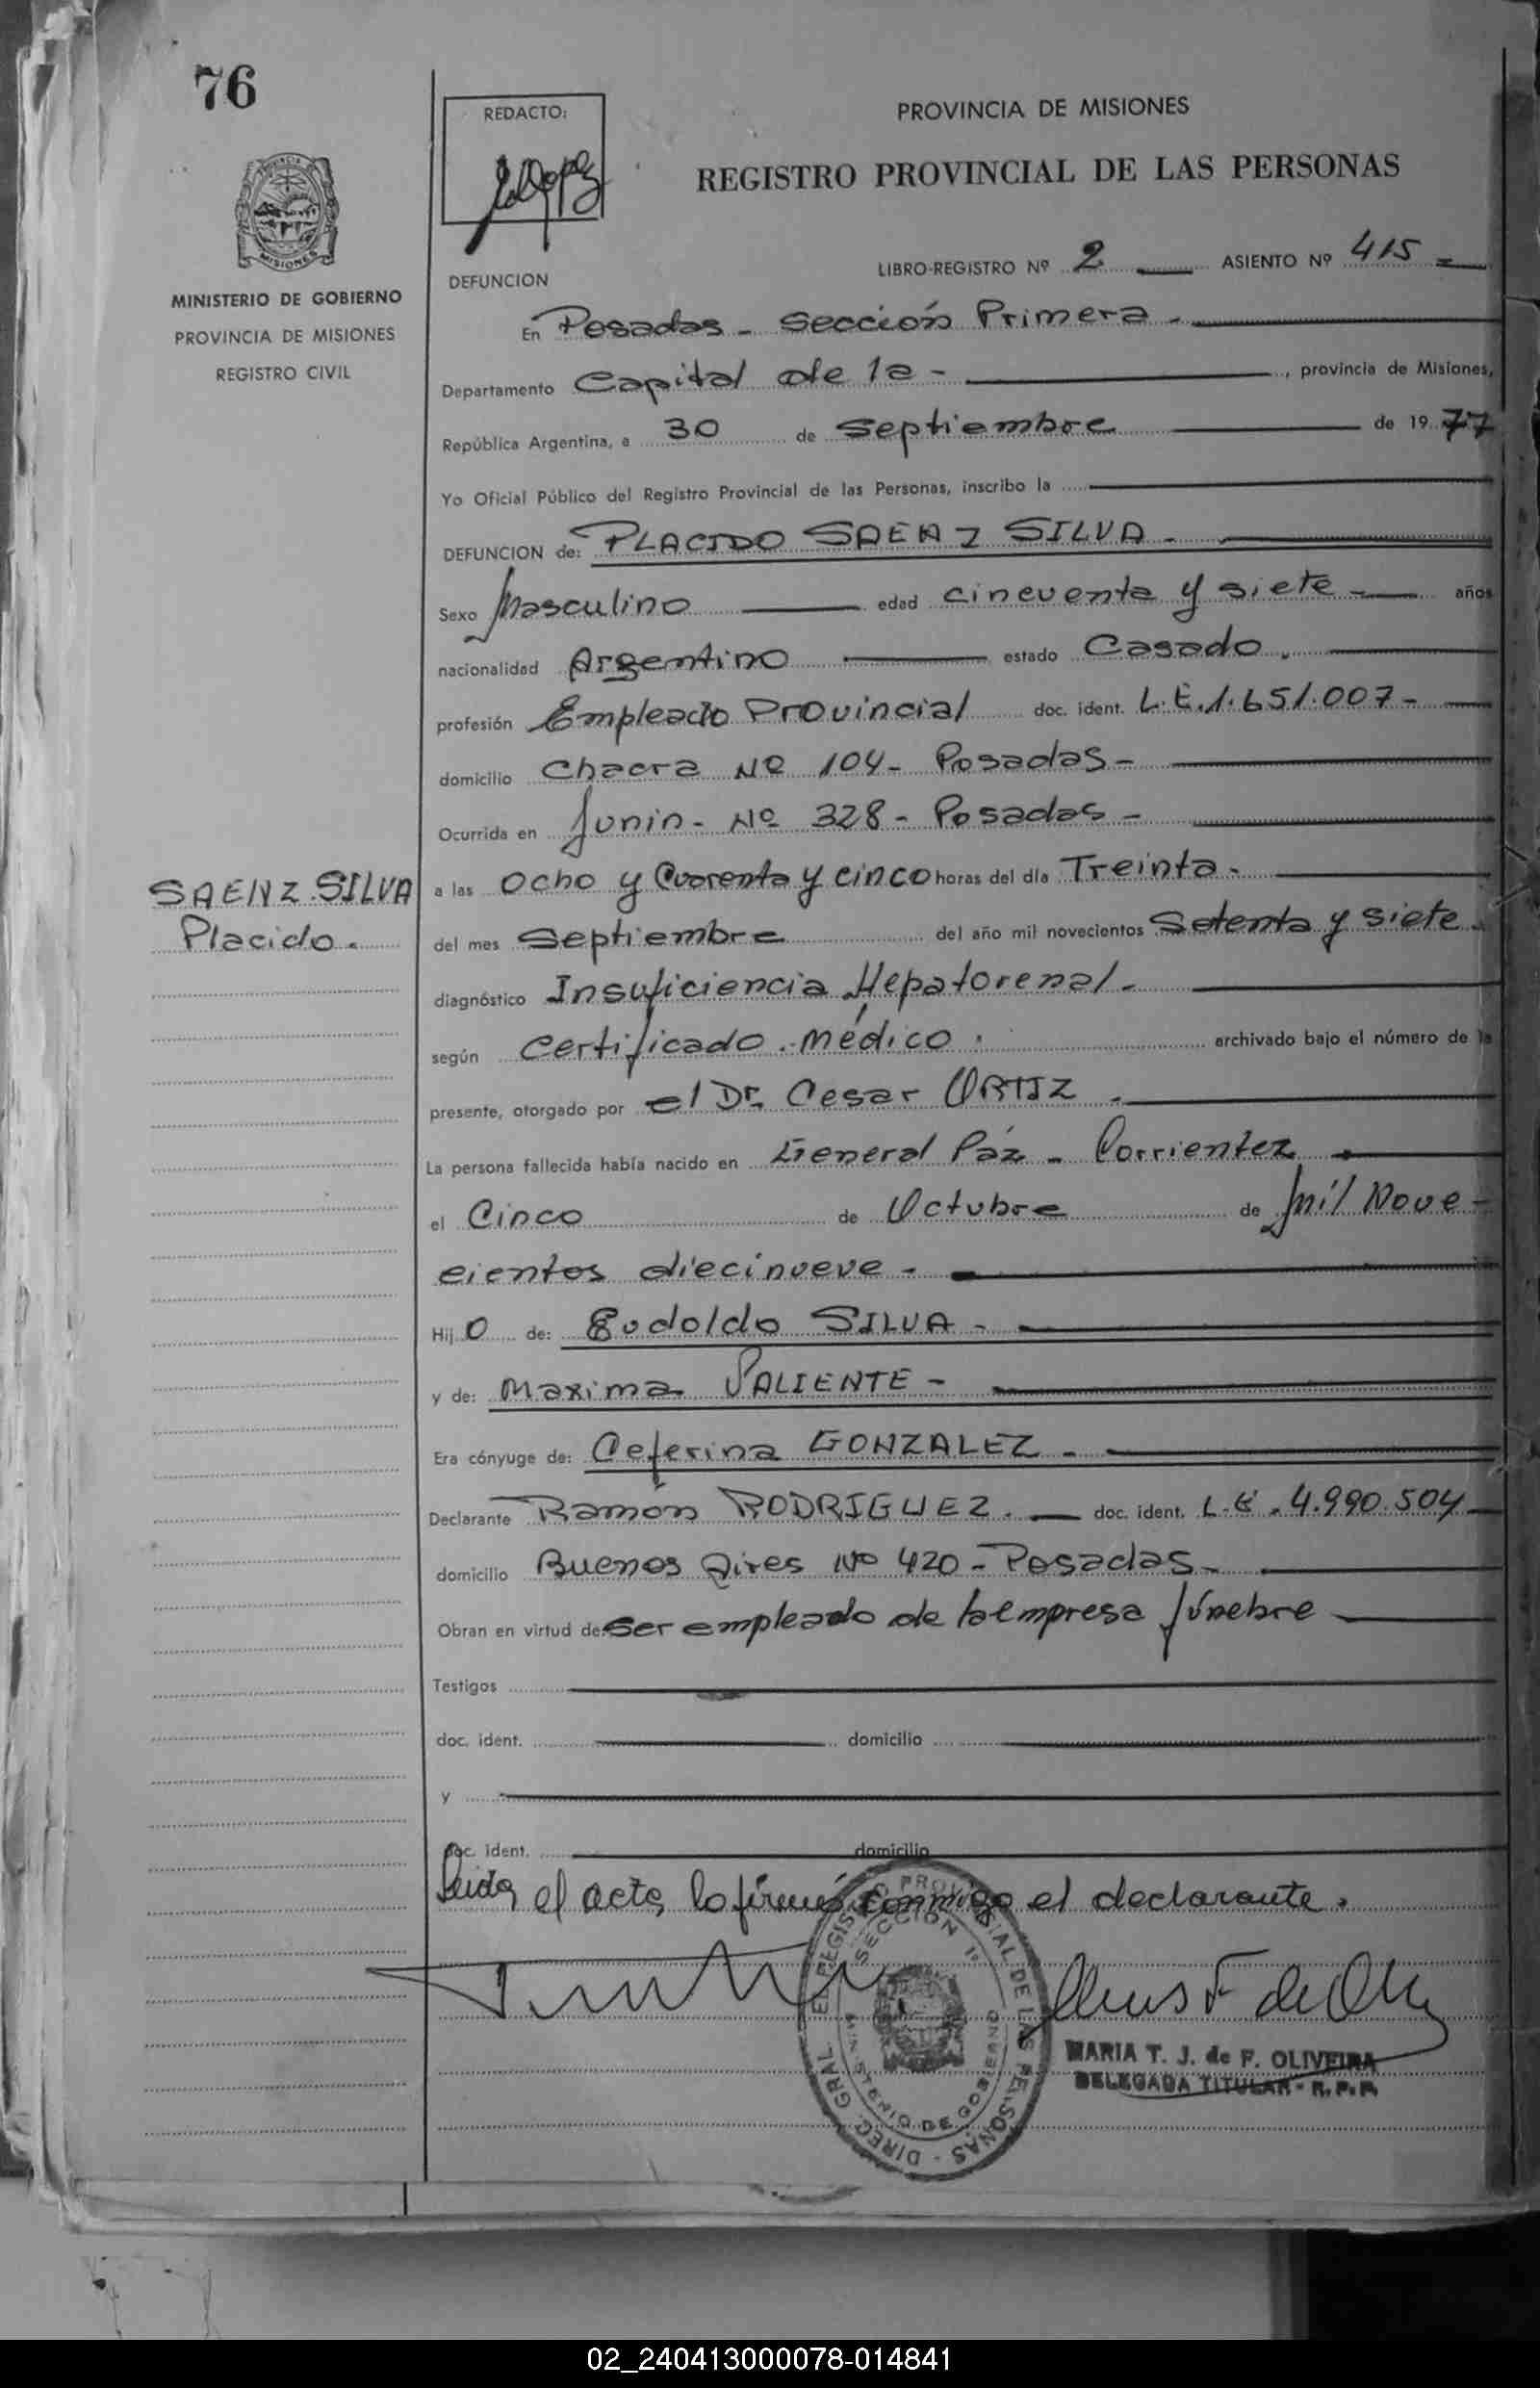 76
REDACTO:
PROVINCIA DE MISIONES
REGISTRO PROVINCIAL DE LAS PERSONAS
MISIONES
MINISTERIO DE GOBIERNO
PROVINCIA DE MISIONES
REGISTRO CIVIL
LIBRO-REGISTRO Nº 2 ASIENTO Nº 415 =
DEFUNCION
En Posadas - Sección Primera -
Departamento Capital de la - , provincia de Misiones,
República Argentina, a 30 de Septiembre de 1977
Yo Oficial Público del Registro Provincial de las Personas, inscribo la
DEFUNCION de: PLACIDO SAENZ SILVA -
Sexo Masculino edad cincuenta y siete - años
nacionalidad Argentino estado Casado.
profesión Empleado Provincial doc. ident. L.E.1.651.007 -
domicilio Chacra Nº 104 - Posadas -
Ocurrida en Junin - Nº 328 - Posadas -
SAENZ SILVA
Placido.
a las Ocho y Cuarenta y cinco horas del día Treinta -
del mes Septiembre del año mil novecientos Setenta y siete.
diagnóstico Insuficiencia Hepatorenal -
según Certificado médico . archivado bajo el número de la
presente, otorgado por el Dr. Cesar ORTIZ .
La persona fallecida había nacido en General Páz - Corrientez
el Cinco de Octubre de Mil Nove-
cientos diecinueve -
Hijo de: Eudoldo SILVA -
y de: Maxima VALIENTE -
Era cónyuge de: Ceferina GONZALEZ -
Declarante Ramón RODRIGUEZ. doc. ident. L.E. 4.990.504
domicilio Buenos Aires Nº 420 - Posadas -
Obran en virtud de: Ser empleado de la empresa fúnebre
Testigos
doc. ident. domicilio
y
doc. ident. domicilio
Leida el acta, lo firmó conmigo el declarante.
DIREC. GRAL. DEL REGISTRO PROVINCIAL DE LAS PERSONAS -
SECCION 1º
MINISTERIO DE GOBIERNO
MARIA T. J. de F. OLIVEIRA
DELEGADA TITULAR - R. P. P.
02_240413000078-014841